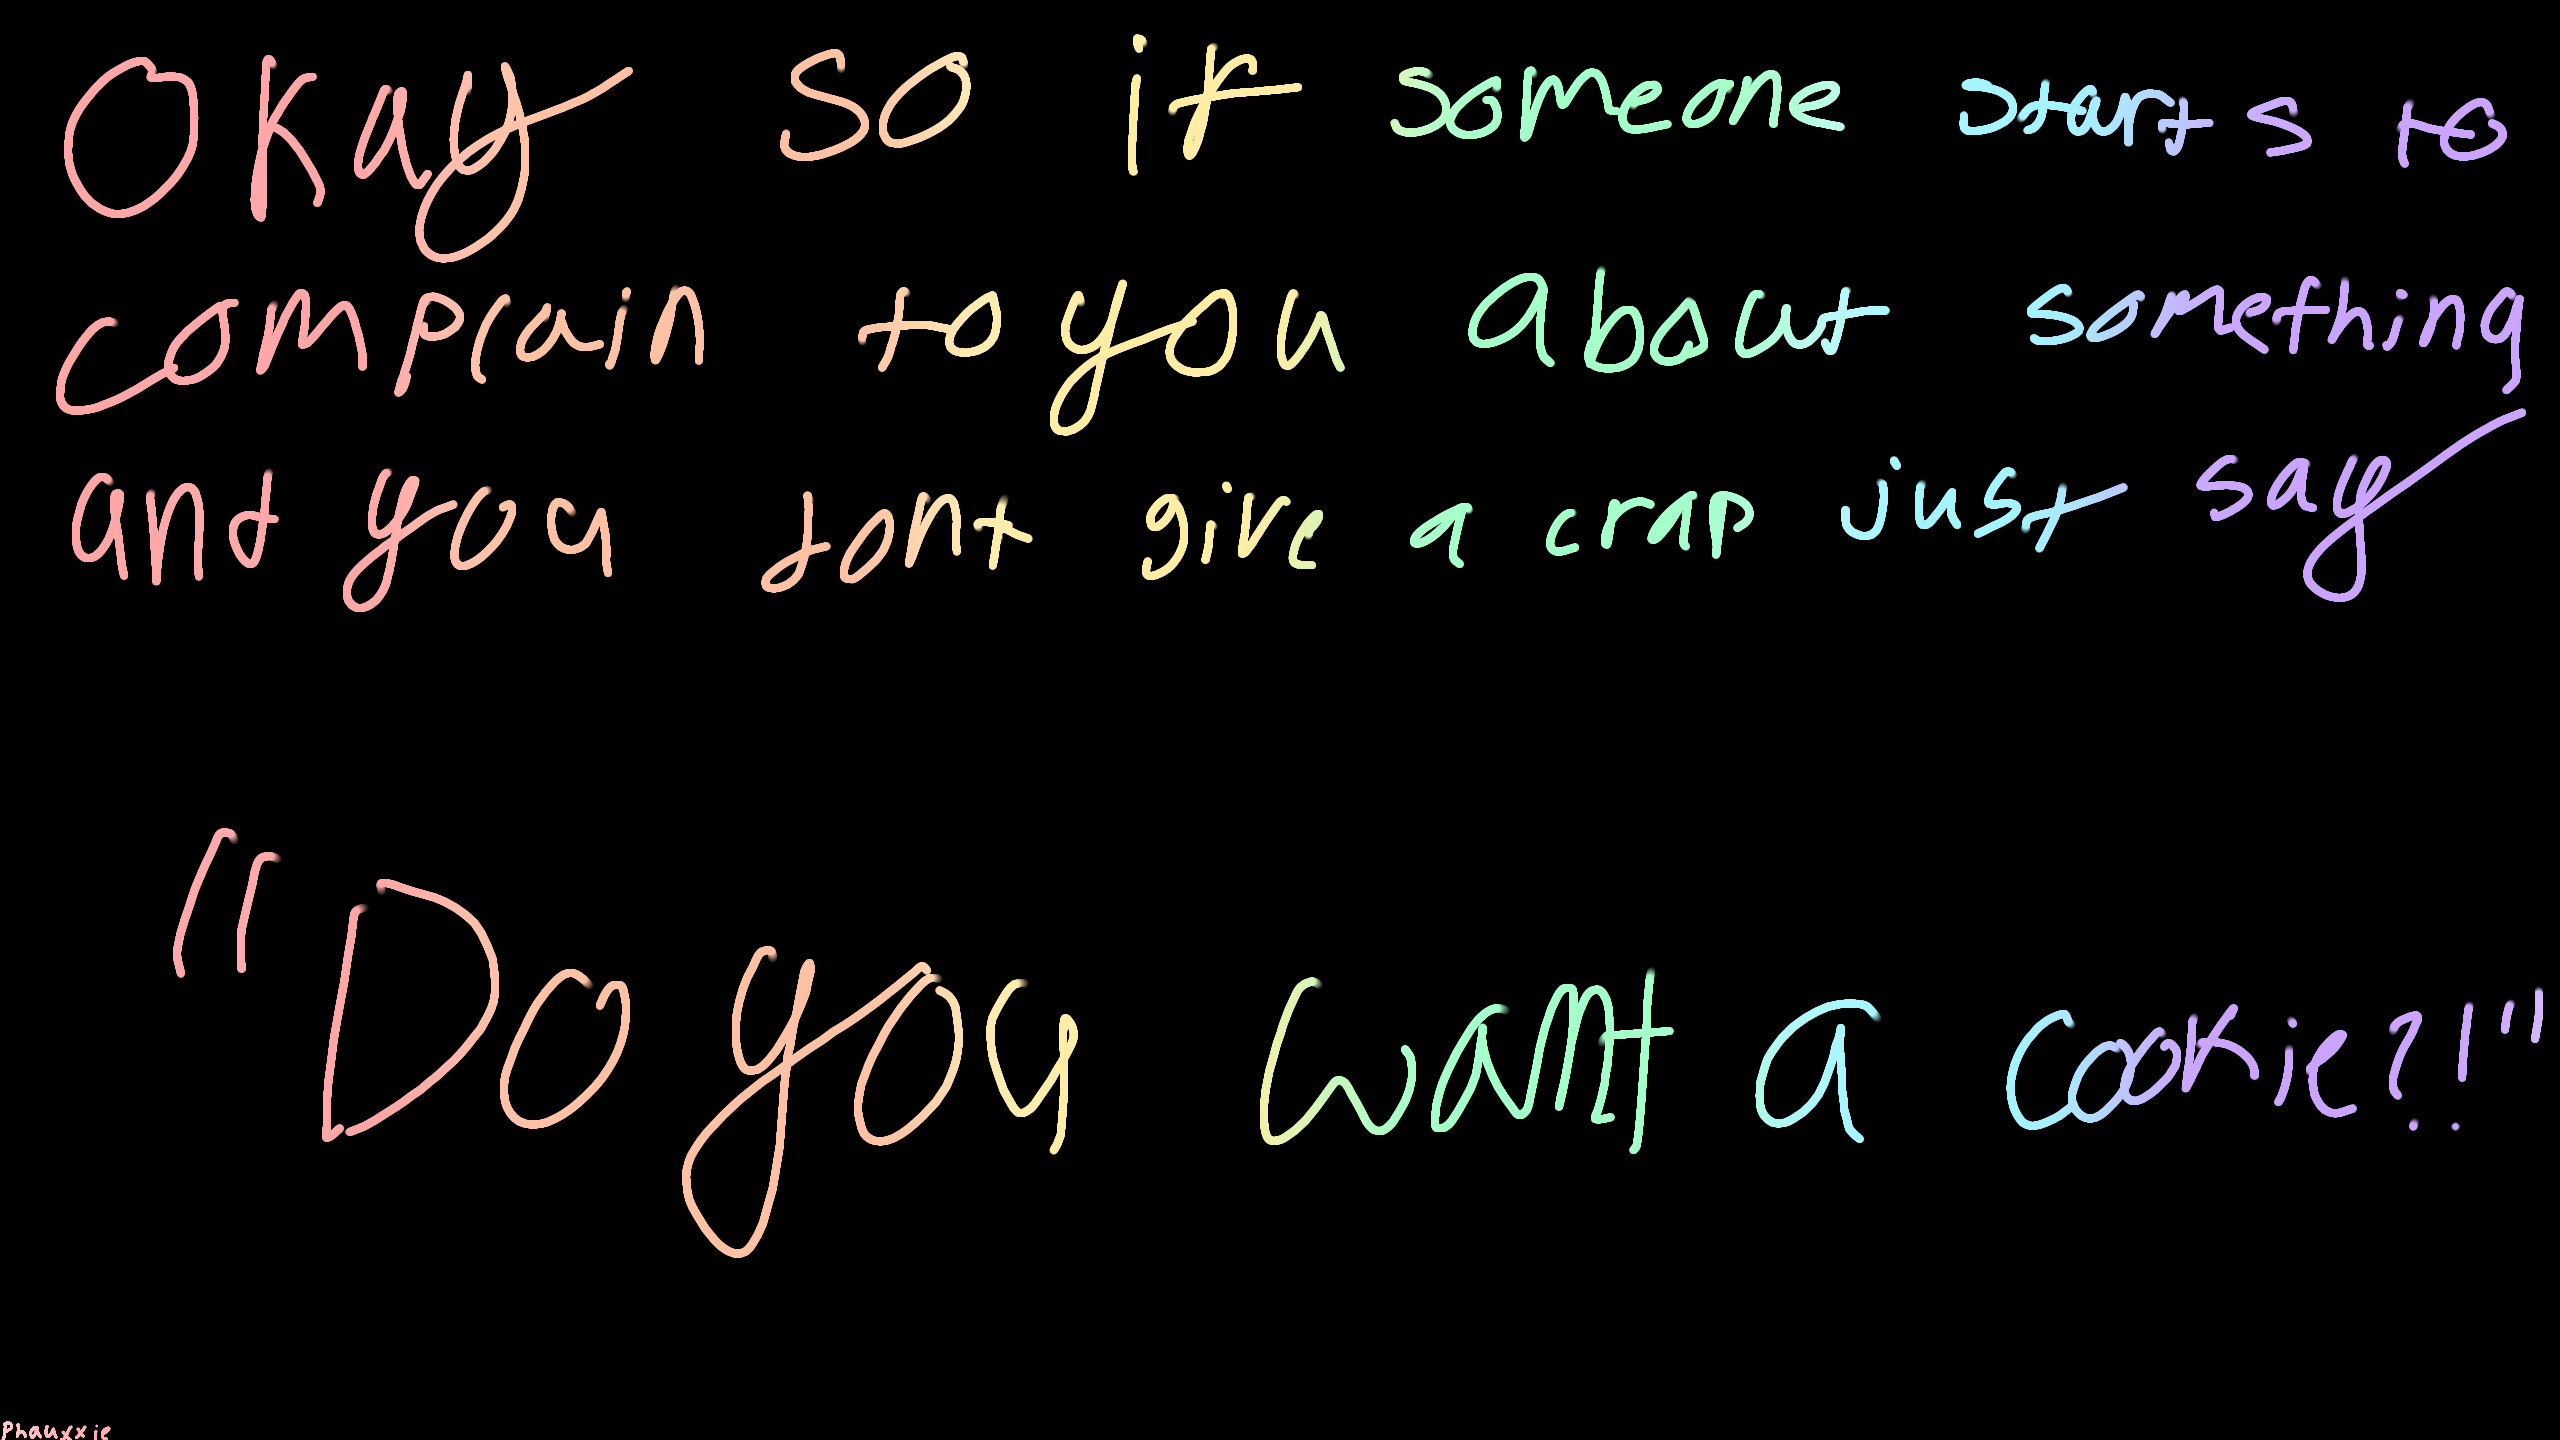 Okay so if someone starts to
complain to you about something
and you dont give a crap just say
"Do you want a cookie?!"
Phauxxie